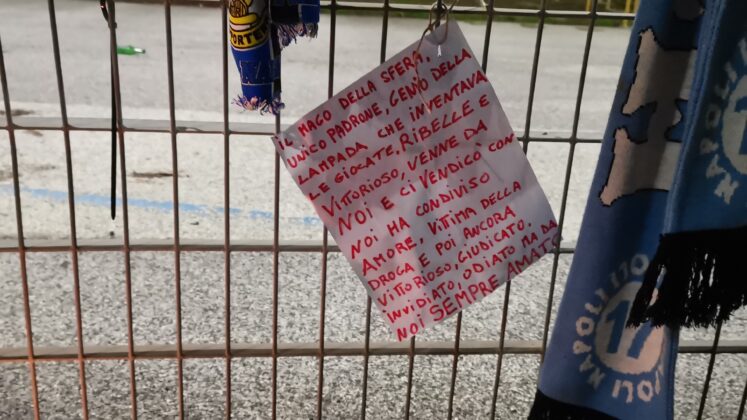 IL MAGO DELLA SFERA,
UNICO PADRONE, GENIO DELLA
LAMPADA CHE INVENTAVA
LE GIOCATE, RIBELLE E
VITTORIOSO, VENNE DA
NOI E CI VENDICÒ CON
NOI HA CONDIVISO
AMORE, VITTIMA DELLA
DROGA E POI ANCORA
VITTORIOSO, GIUDICATO,
INVIDIATO, ODIATO MA DA
NOI SEMPRE AMATO
NAPOLI
NAPOLI
NAPOLI